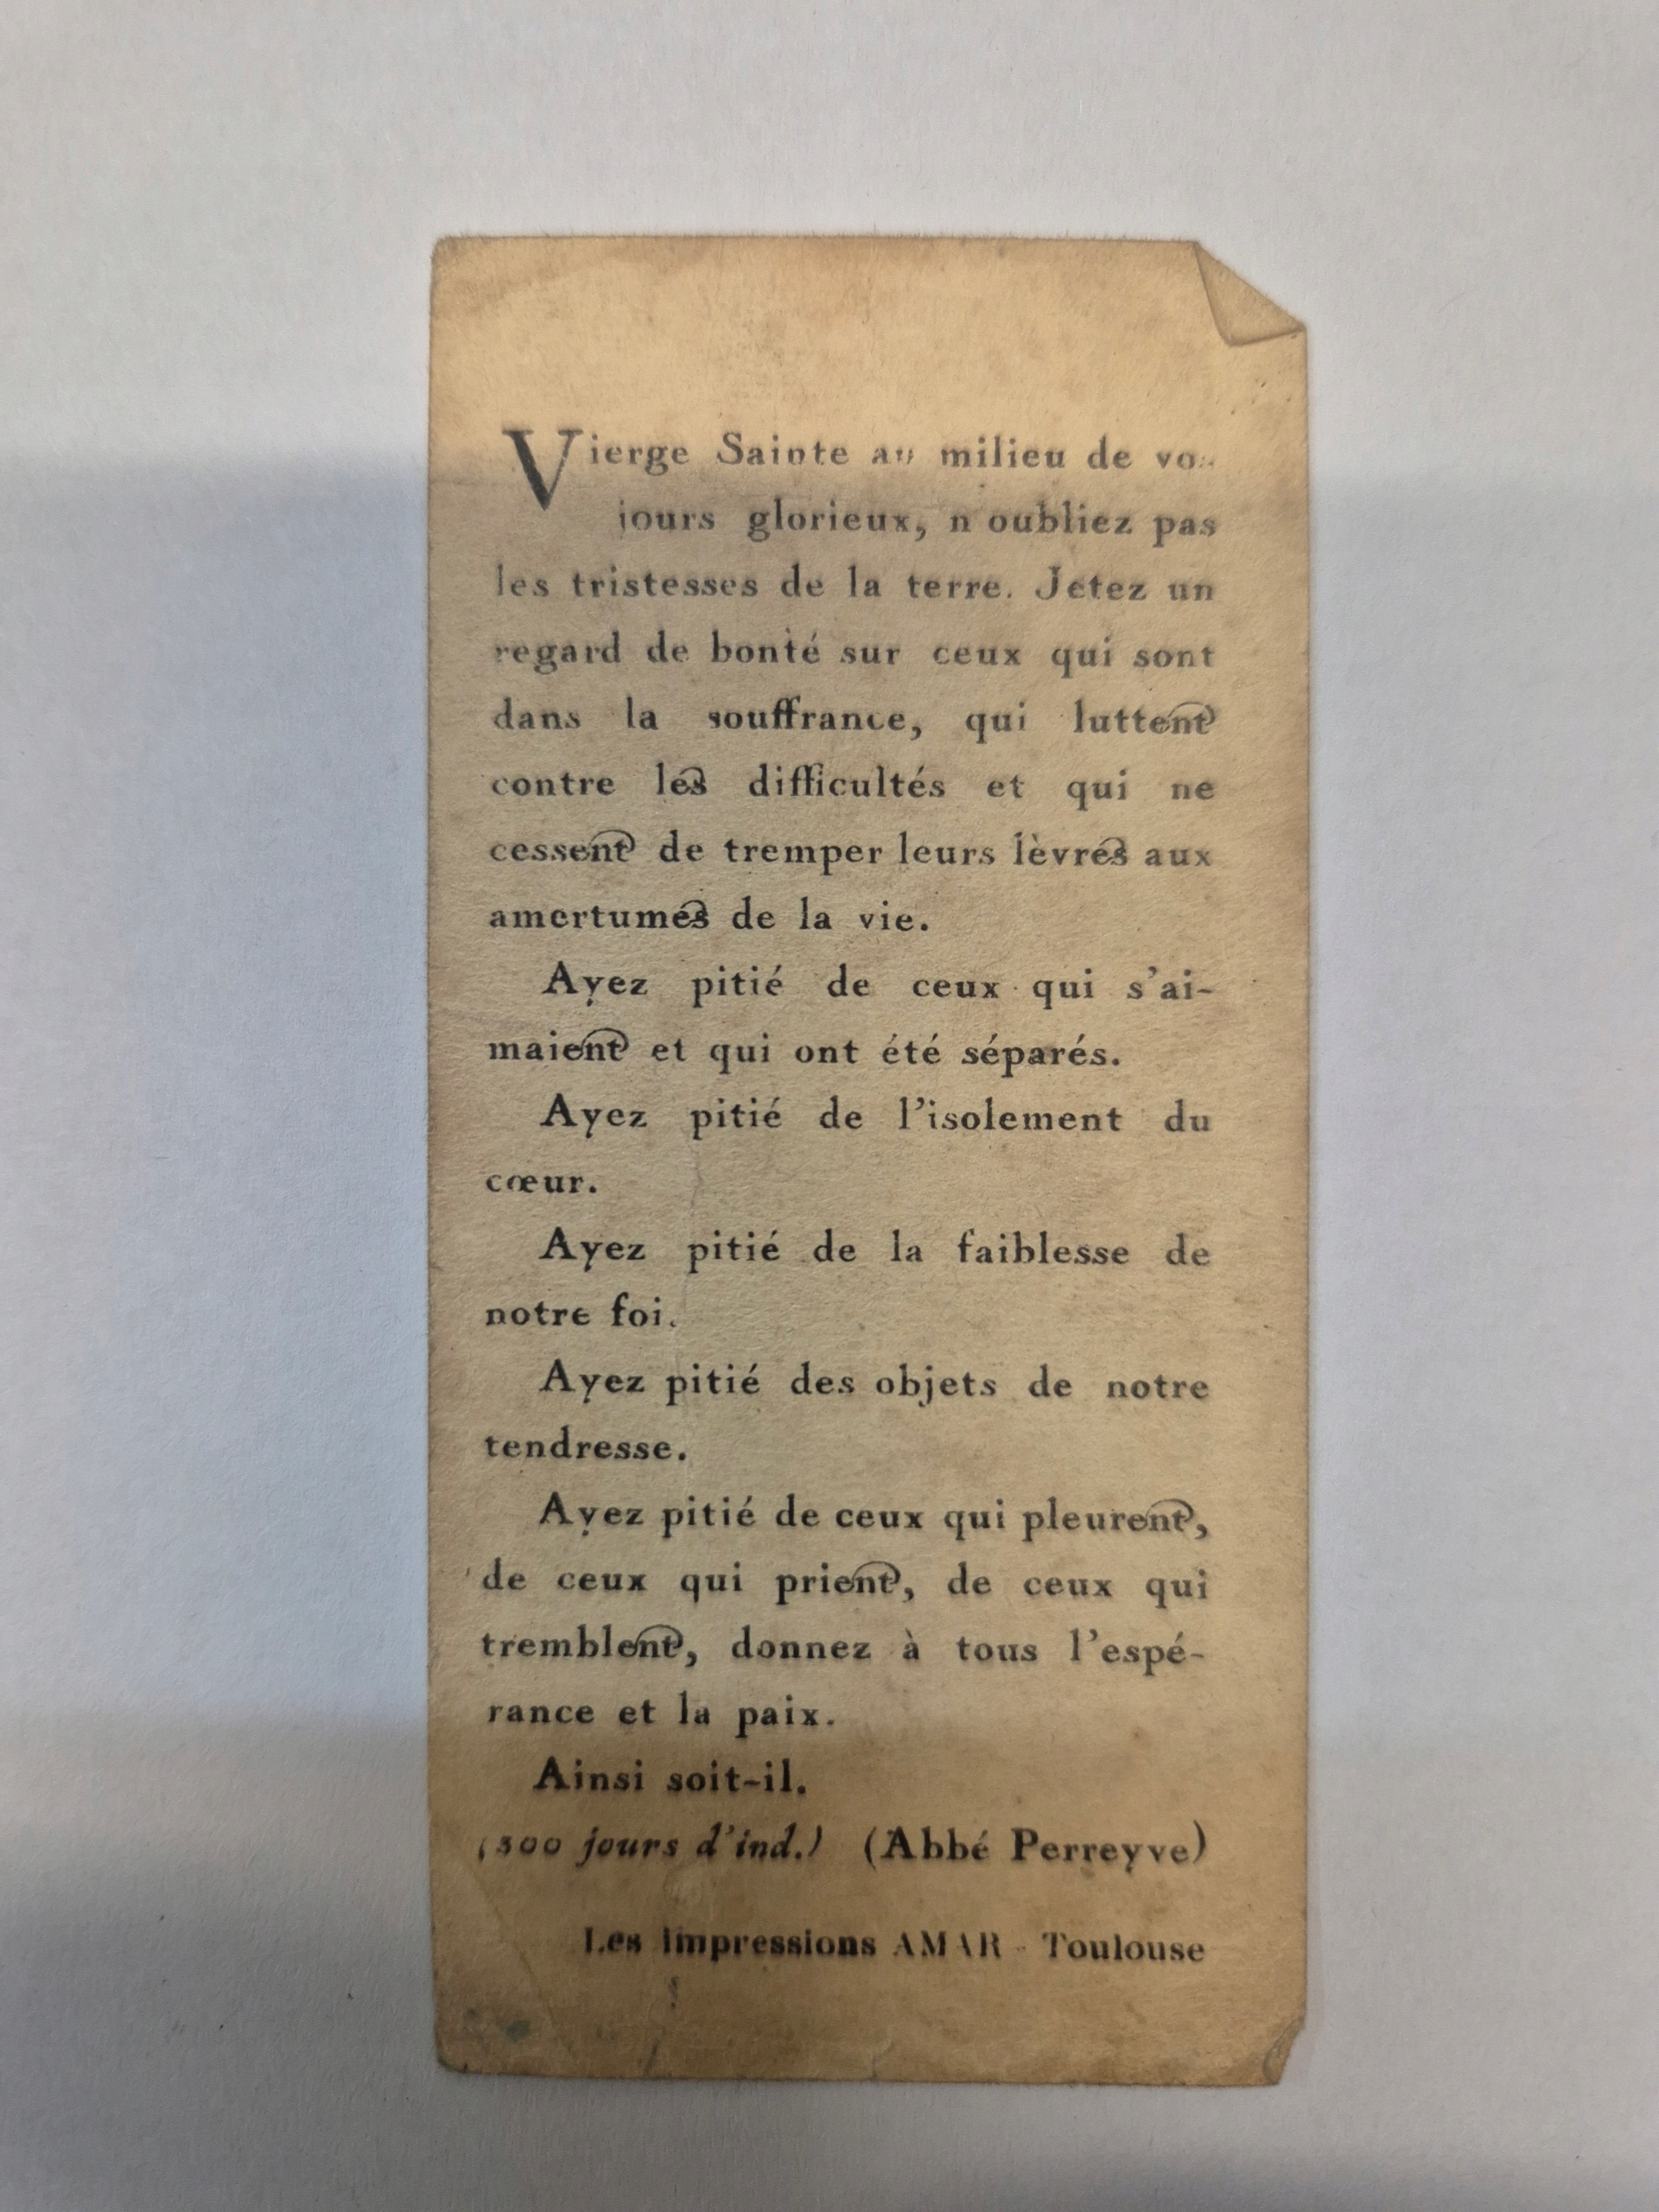 Vierge Sainte au milieu de vos
jours glorieux, n'oubliez pas
les tristesses de la terre. Jetez un
regard de bonté sur ceux qui sont
dans la souffrance, qui luttent
contre les difficultés et qui ne
cessent de tremper leurs lèvres aux
amertumes de la vie.
Ayez pitié de ceux qui s'ai-
maient et qui ont été séparés.
Ayez pitié de l'isolement du
cœur.
Ayez pitié de la faiblesse de
notre foi.
Ayez pitié des objets de notre
tendresse.
Ayez pitié de ceux qui pleurent,
de ceux qui prient, de ceux qui
tremblent, donnez à tous l'espé-
rance et la paix.
Ainsi soit-il.
(300 jours d'ind.) (Abbé Perreyve)
Les Impressions AMAR - Toulouse